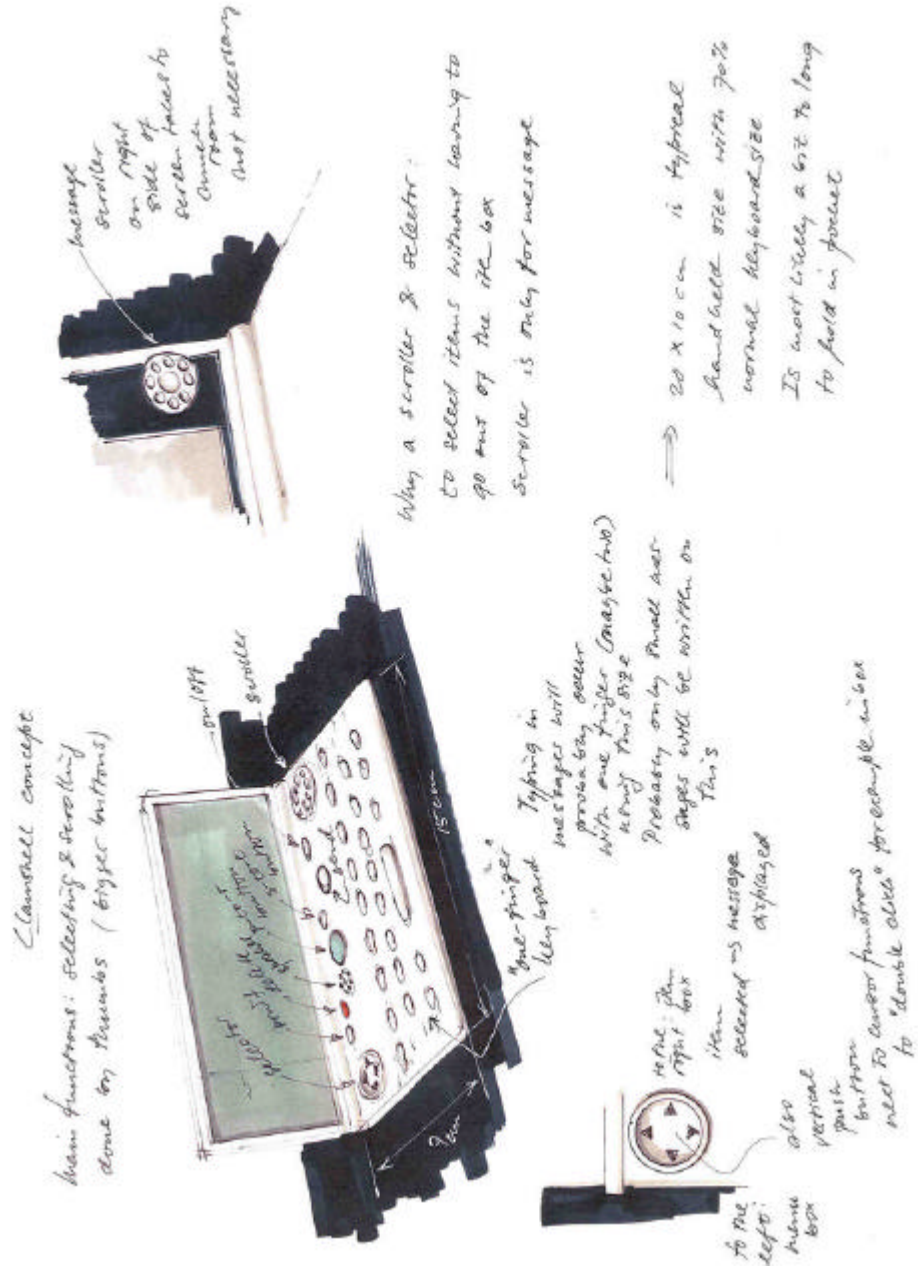 Clamshell concept
main functions: selecting & scrolling
done by thumbs (bigger buttons)
on/off
scroller
selector
send
7cm
15cm
"one-finger"
keyboard
Typing in
messages will
probably occur
with one finger (maybe two)
using this size
Probably only small mes-
sages will be written on
this
message
scroller
on right
side of
screen takes to
much
room
not necessary
Why a scroller & selector:
to select items without having to
go out of the item box
scroller is only for message
⇒ 20 x 10 cm is typical
handheld size with 70%
normal keyboard size
Is most likely a bit to long
to hold in pocket
to the
left:
menu
box
to the: item
right box
item
selected as message
displayed
also
vertical
push
button
next to cursor functions
to "double click" for example in box